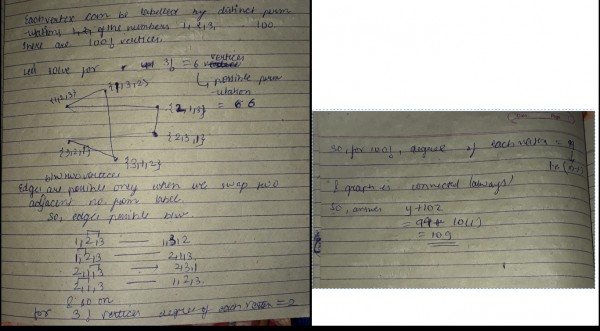 Each vertex can be labelled by distinct perm
utations of the numbers 1, 2, 3, ... 100
there are 100! vertices.
Let solve for 3! = 6 vertices
possible perm
utation
{1,3,2}
{1,2,3}
{2,1,3} = 6
{2,3,1}
{3,2,1}
{3,1,2}
b/w two vertices
Edges are possible only when we swap two
adjacent no. from label.
So, edges possible b/w.
1,2,3 —— 1,3,2
1,2,3 —— 2,1,3
2,1,3 —→ 2,3,1
2,1,3 —— 1,2,3.
& so on
for 3! vertices degree of each vertex = 2
So, for 100!, degree of each vertex = 99
i.e (n-1)
& graph is connected (always)
So, answer y+10z
= 99 + 10(1)
= 109